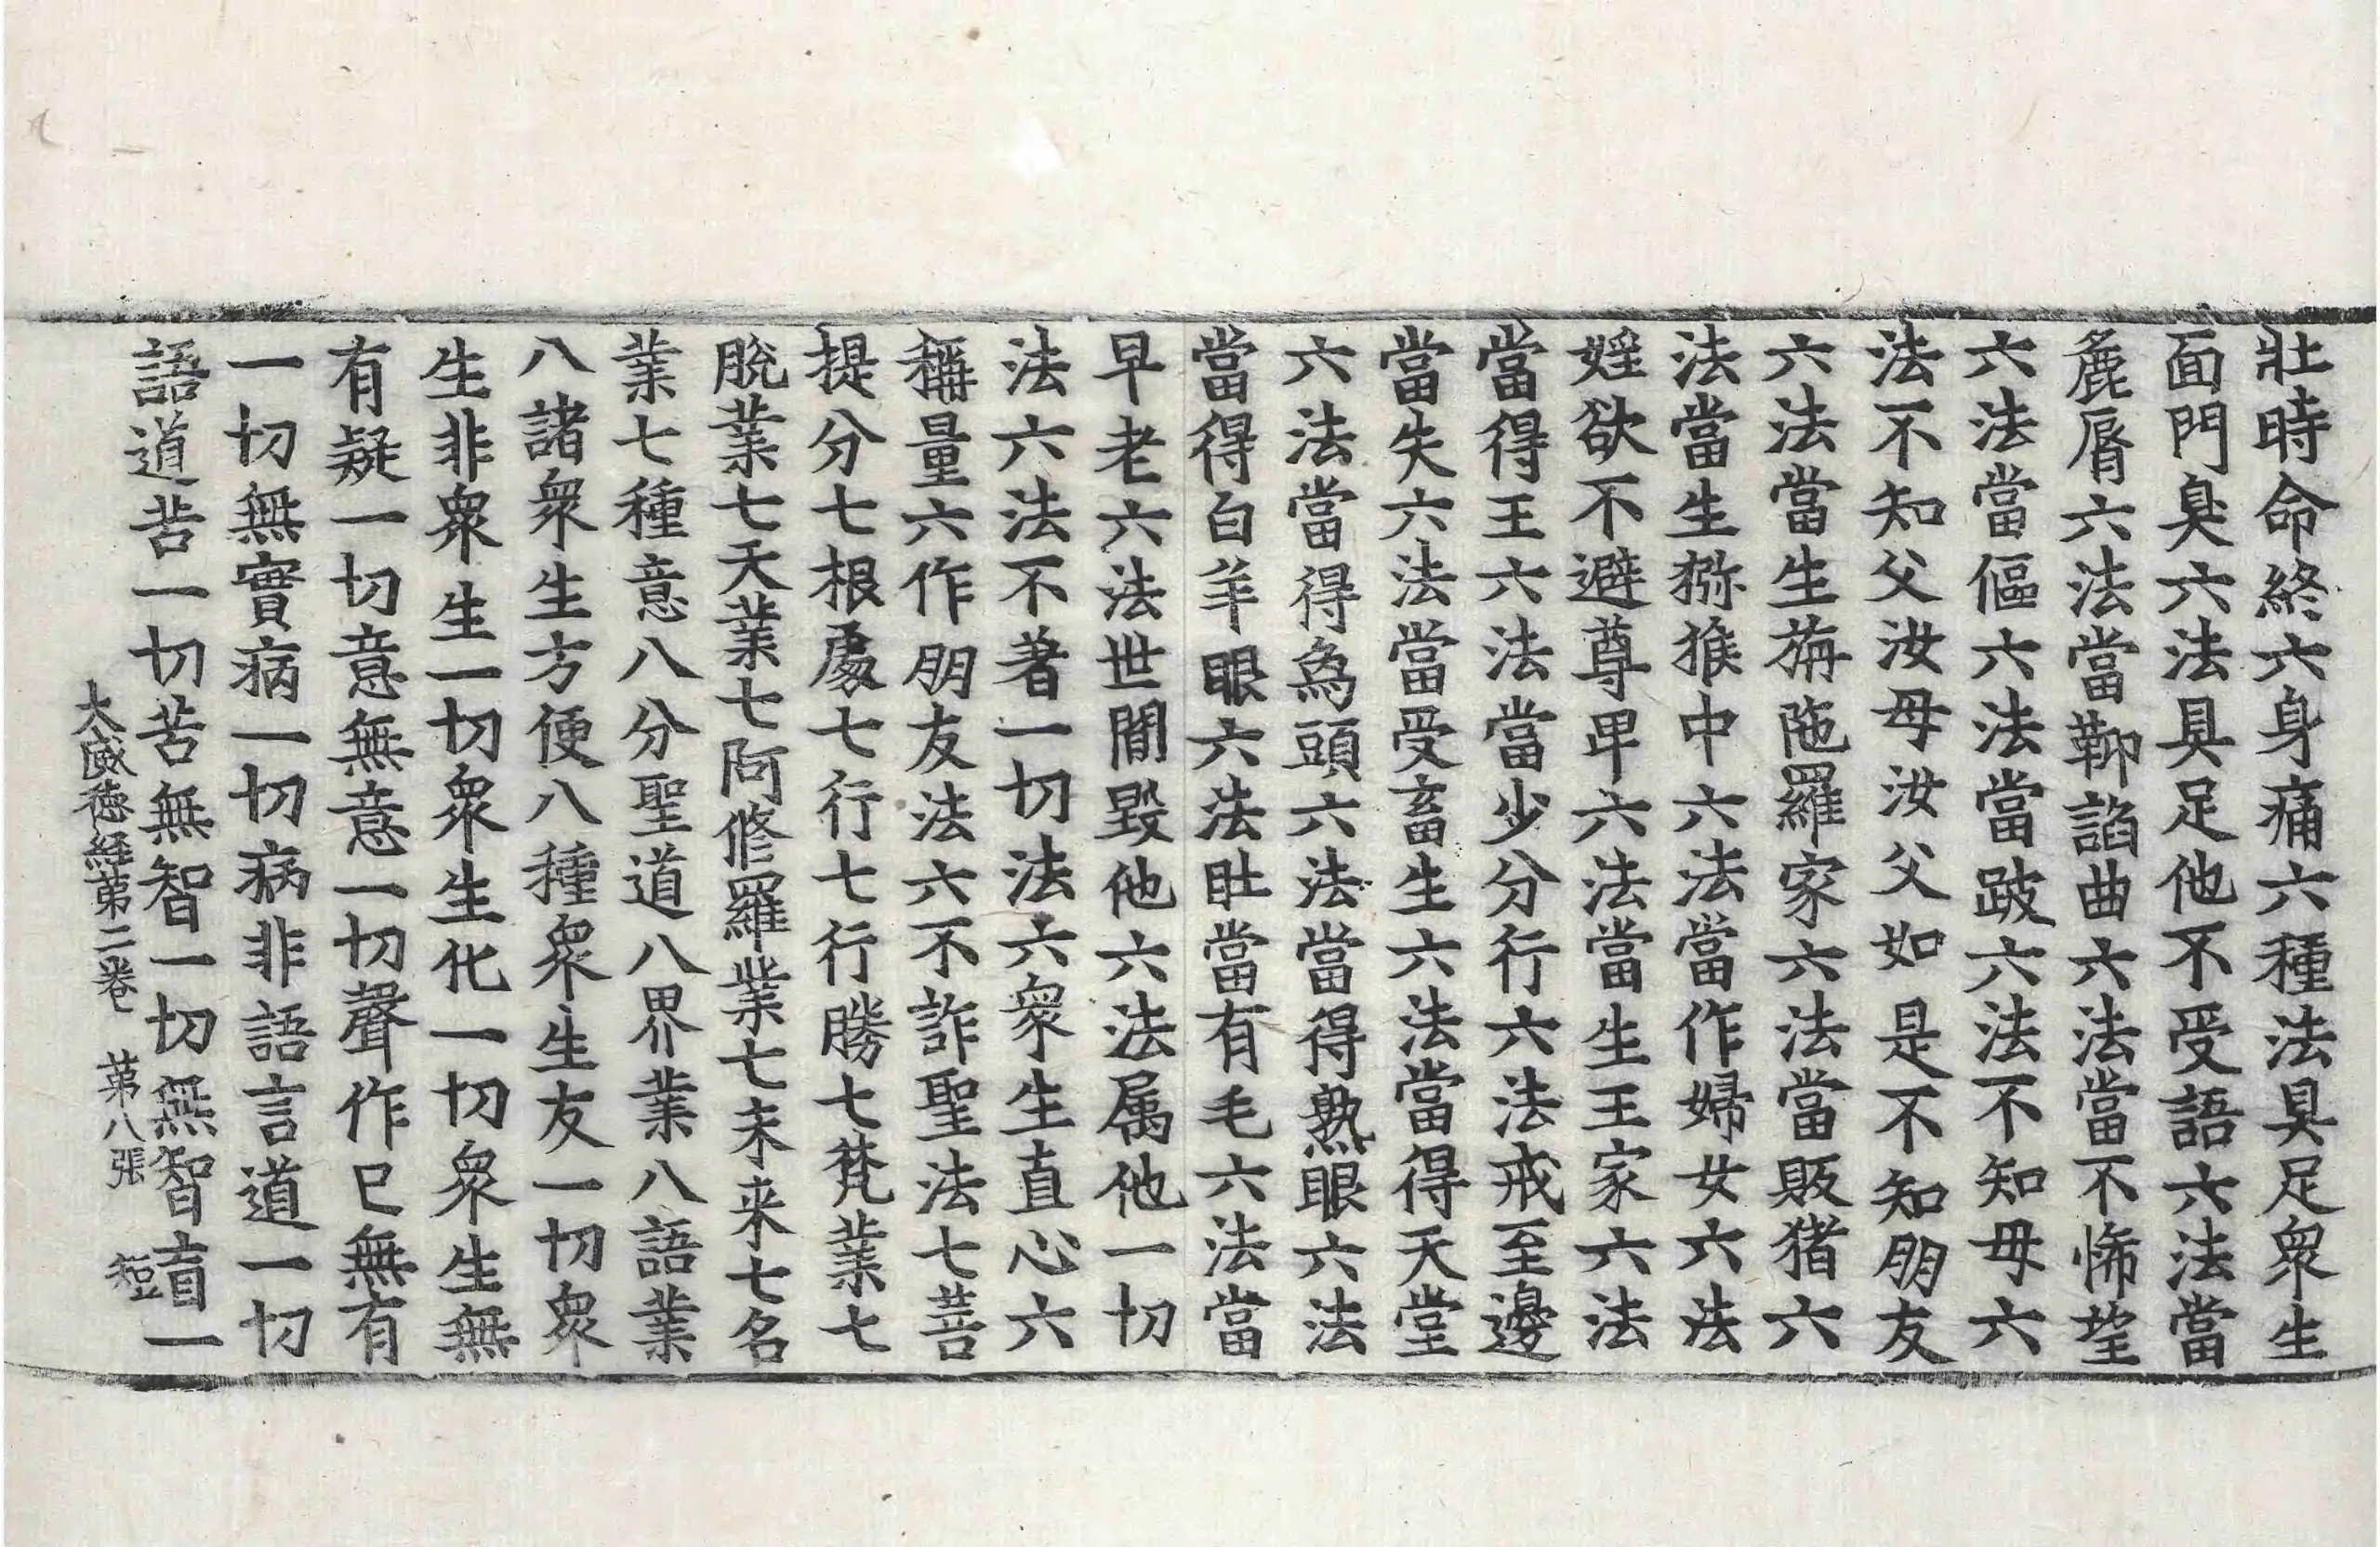 壯時命終六身痛六種法具足衆生
面門臭六法具足他不受語六法當
麁脣六法當諂曲六法當不悕望
六法當傴六法當跛六法不知母六
法不知父汝母汝父如是不知朋友
六法當生旃陁羅家六法當販猪六
法當生猕猴中六法當作婦女六法
婬欲不避尊卑六法當生王家六法
當得王六法當少分行六法戒至邊
當失六法當受畜生六法當得天堂
六法當得爲頭六法當得熟眼六法
當得白羊眼六法肚當有毛六法當
早老六法世閒毀他六法属他一切
法六法不著一切法六衆生直心六
稱量六作朋友法六不詐聖法七菩
提分七根處七行七行勝七梵業七
脫業七天業七阿修羅業七未来七名
業七種意八分聖道八界業八語業
八諸衆生方便八種衆生友一切衆
生非衆生一切衆生化一切衆生無
有疑一切意無意一切聲作已無有
一切無實病一切病非語言道一切
語道苦一切苦無智一切無智盲一
大威德經第二卷 第八張 短